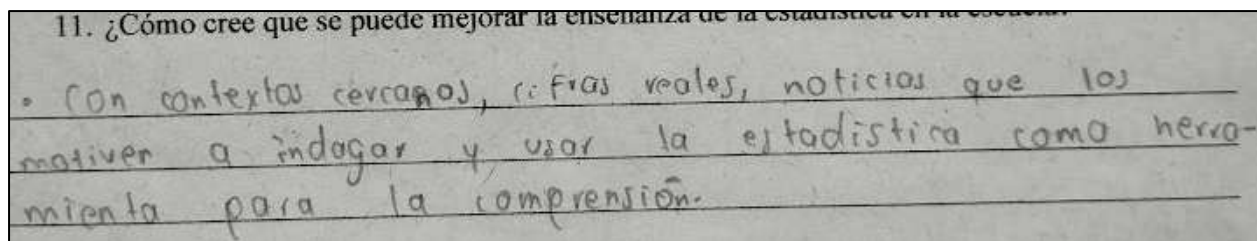 11. ¿Cómo cree que se puede mejorar la enseñanza de la estadística en la escuela?
• Con contextos cercanos, cifras reales, noticias que los
motiven a indagar y usar la estadística como herra-
mienta para la comprensión.